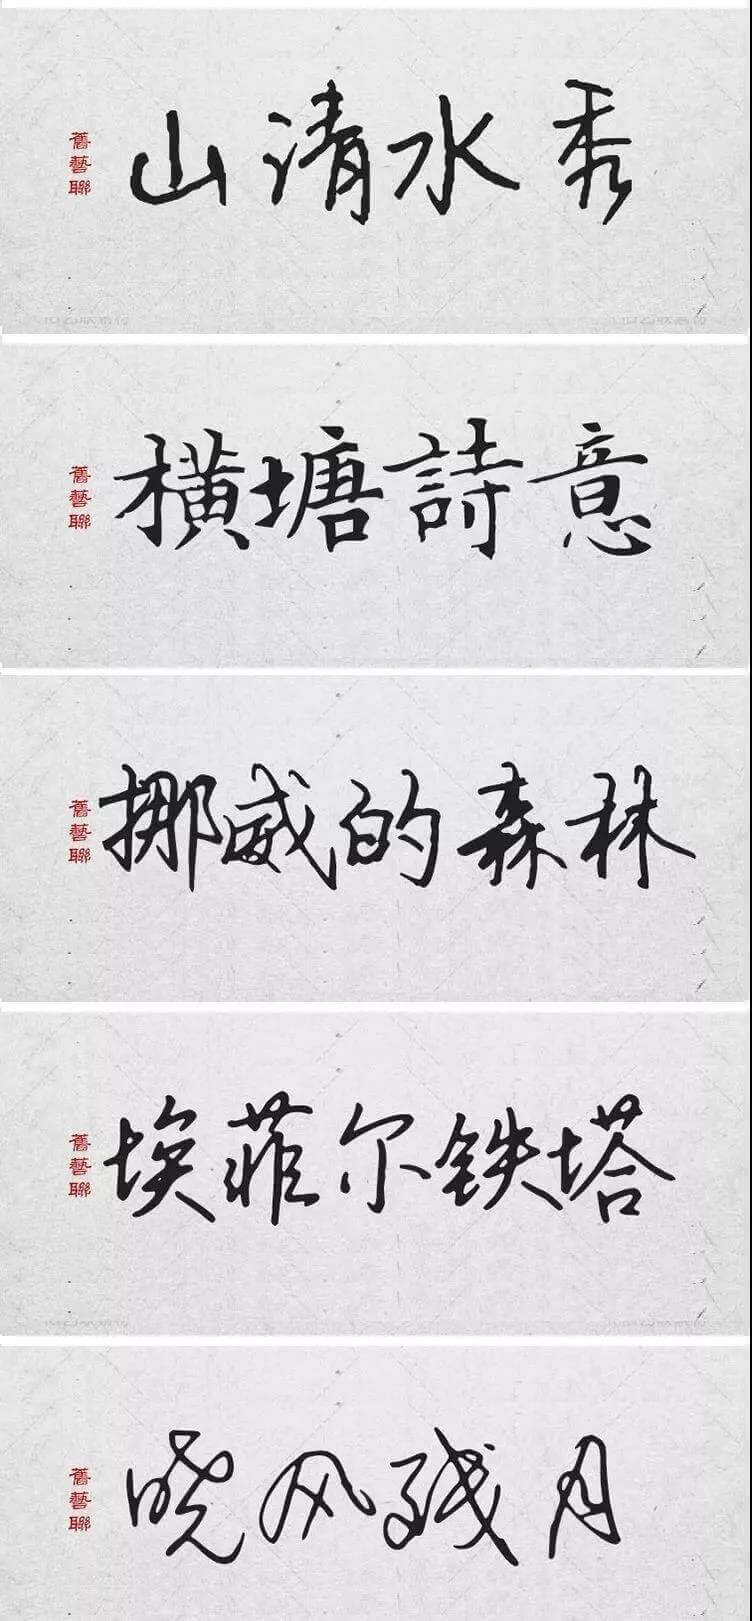 山清水秀
舊藝聯
橫塘詩意
舊藝聯
挪威的森林
舊藝聯
埃菲尔铁塔
舊藝聯
晓风残月
舊藝聯